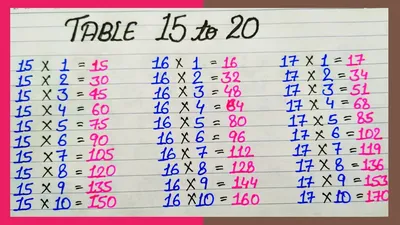 TABLE 15 to 20
15 × 1 = 15 16 × 1 = 16 17 × 1 = 17
15 × 2 = 30 16 × 2 = 32 17 × 2 = 34
15 × 3 = 45 16 × 3 = 48 17 × 3 = 51
15 × 4 = 60 16 × 4 = 64 17 × 4 = 68
15 × 5 = 75 16 × 5 = 80 17 × 5 = 85
15 × 6 = 90 16 × 6 = 96 17 × 6 = 102
15 × 7 = 105 16 × 7 = 112 17 × 7 = 119
15 × 8 = 120 16 × 8 = 128 17 × 8 = 136
15 × 9 = 135 16 × 9 = 144 17 × 9 = 153
15 × 10 = 150 16 × 10 = 160 17 × 10 = 170